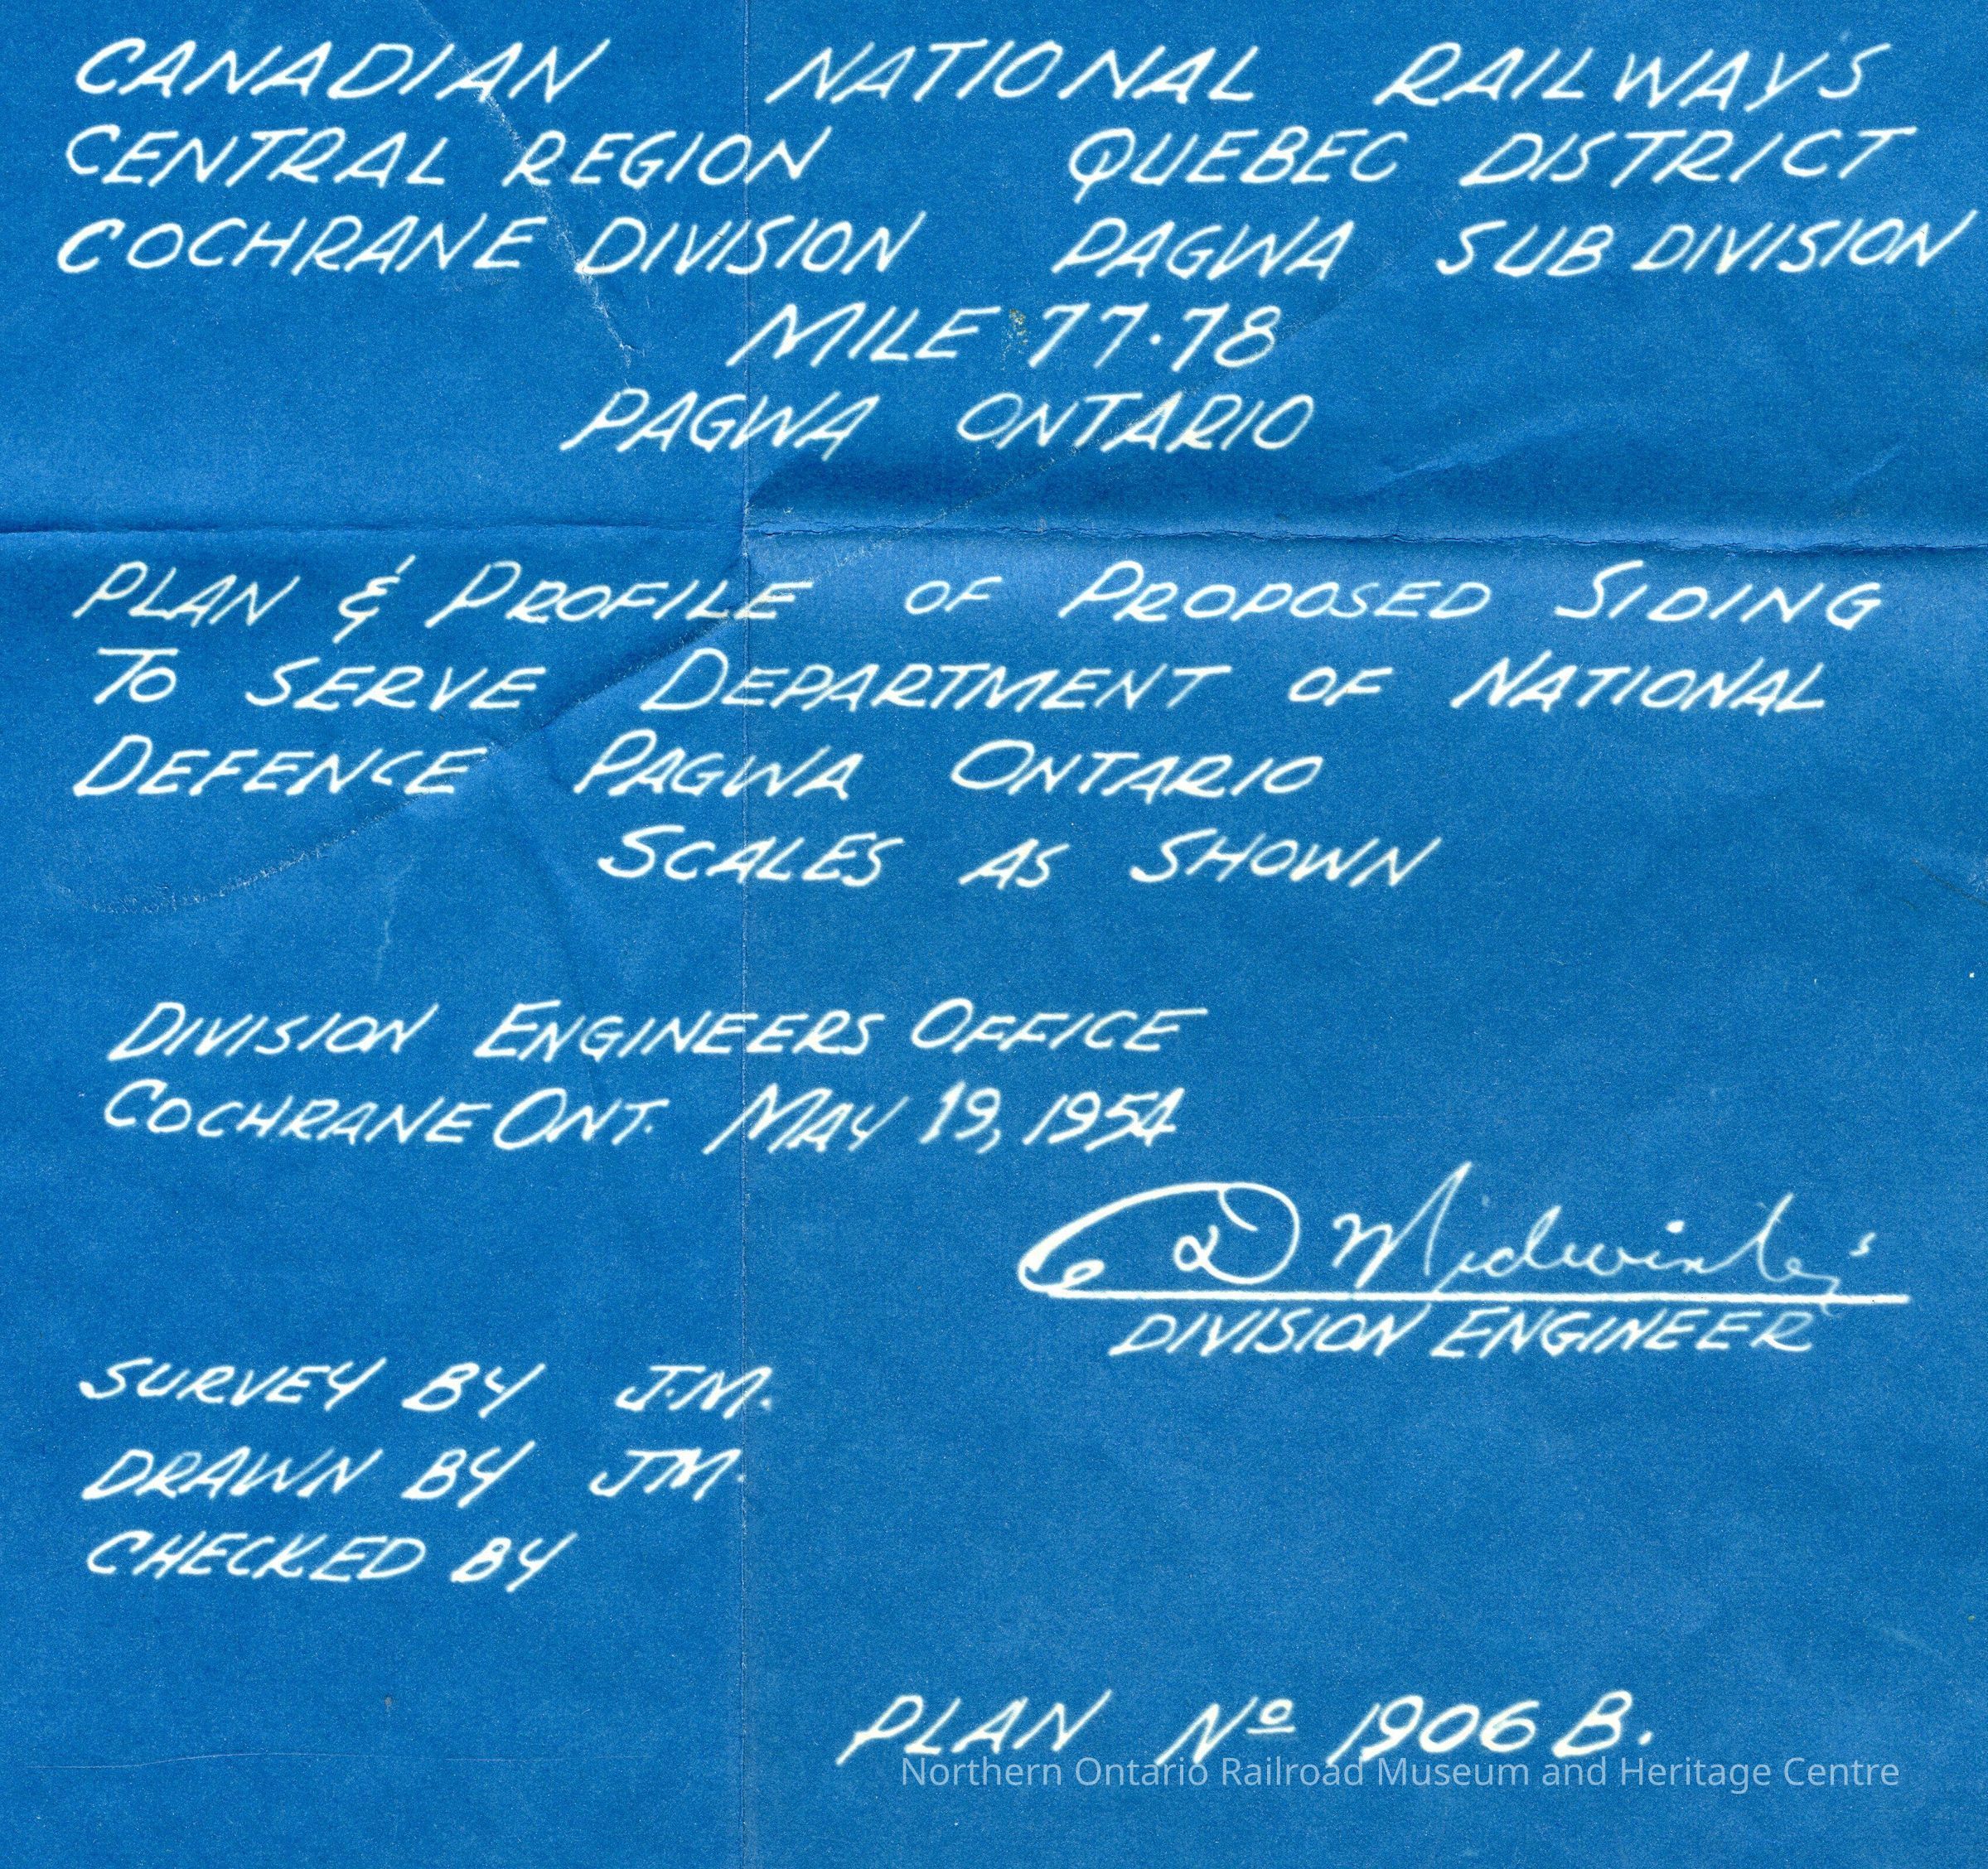 CANADIAN NATIONAL RAILWAYS
CENTRAL REGION QUEBEC DISTRICT
COCHRANE DIVISION PAGWA SUBDIVISION
MILE 77.78
PAGWA ONTARIO
PLAN & PROFILE OF PROPOSED SIDING
TO SERVE DEPARTMENT OF NATIONAL
DEFENCE PAGWA ONTARIO
SCALES AS SHOWN
DIVISION ENGINEERS OFFICE
COCHRANE ONT. MAY 19, 1954
DIVISION ENGINEER
SURVEY BY J.M.
DRAWN BY JM.
CHECKED BY
PLAN Nº 1906 B.
Northern Ontario Railroad Museum and Heritage Centre